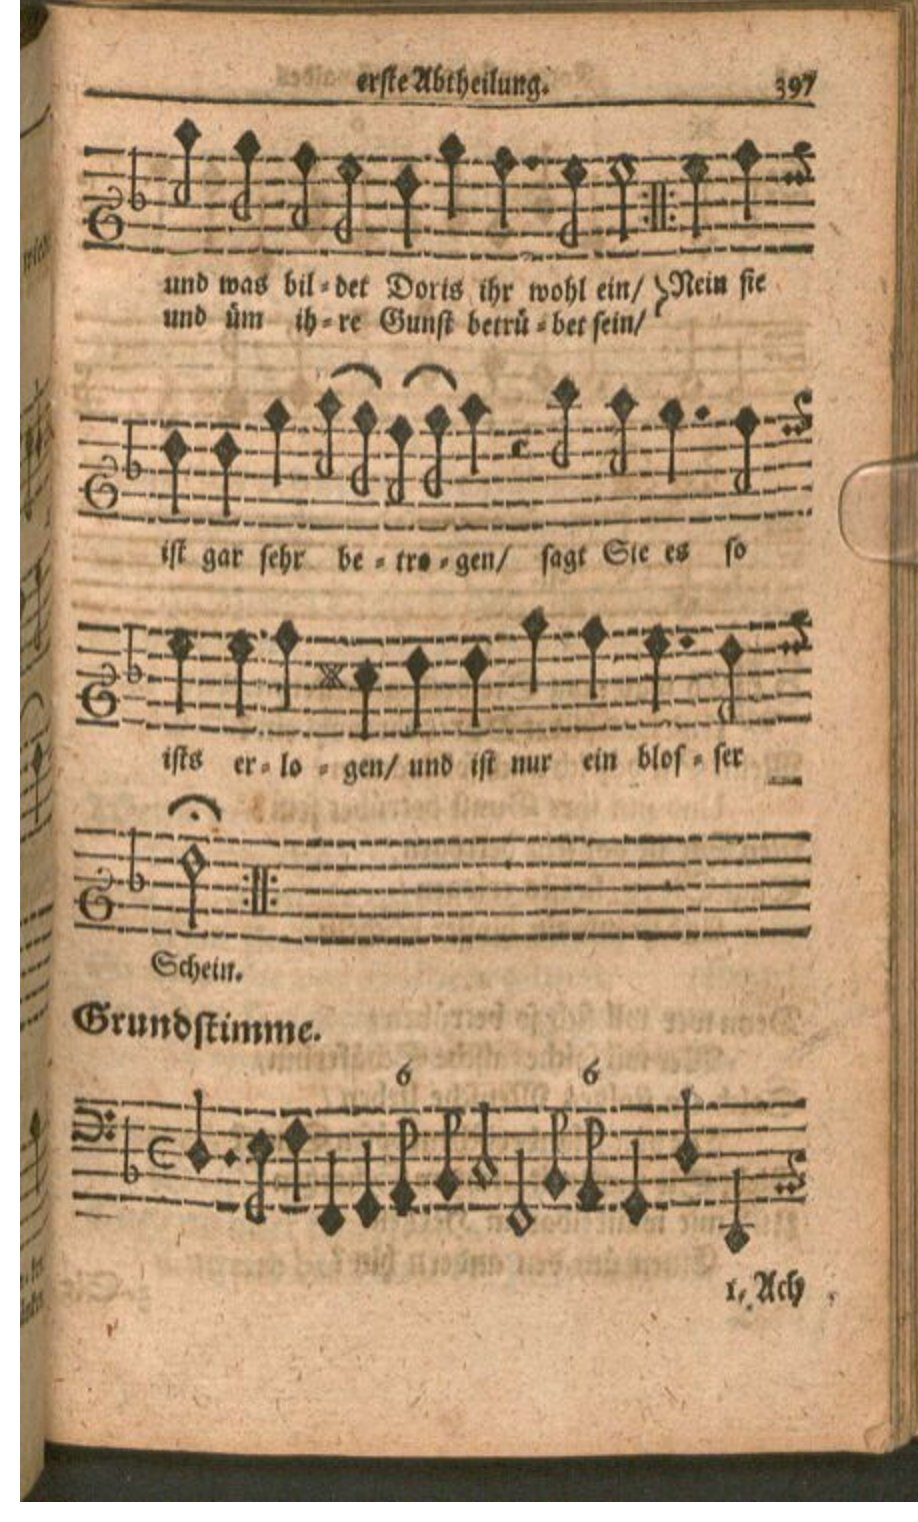 erste Abtheilung. 397
und was bil-det Doris ihr wohl ein/ Nein sie
und üm ih-re Gunst betrü-bet sein/
ist gar sehr be-tro-gen/ sagt Sie es so
ists er-lo-gen/ und ist nur ein blos-ser
Schein.
Grundstimme.
6 6
1. Ach